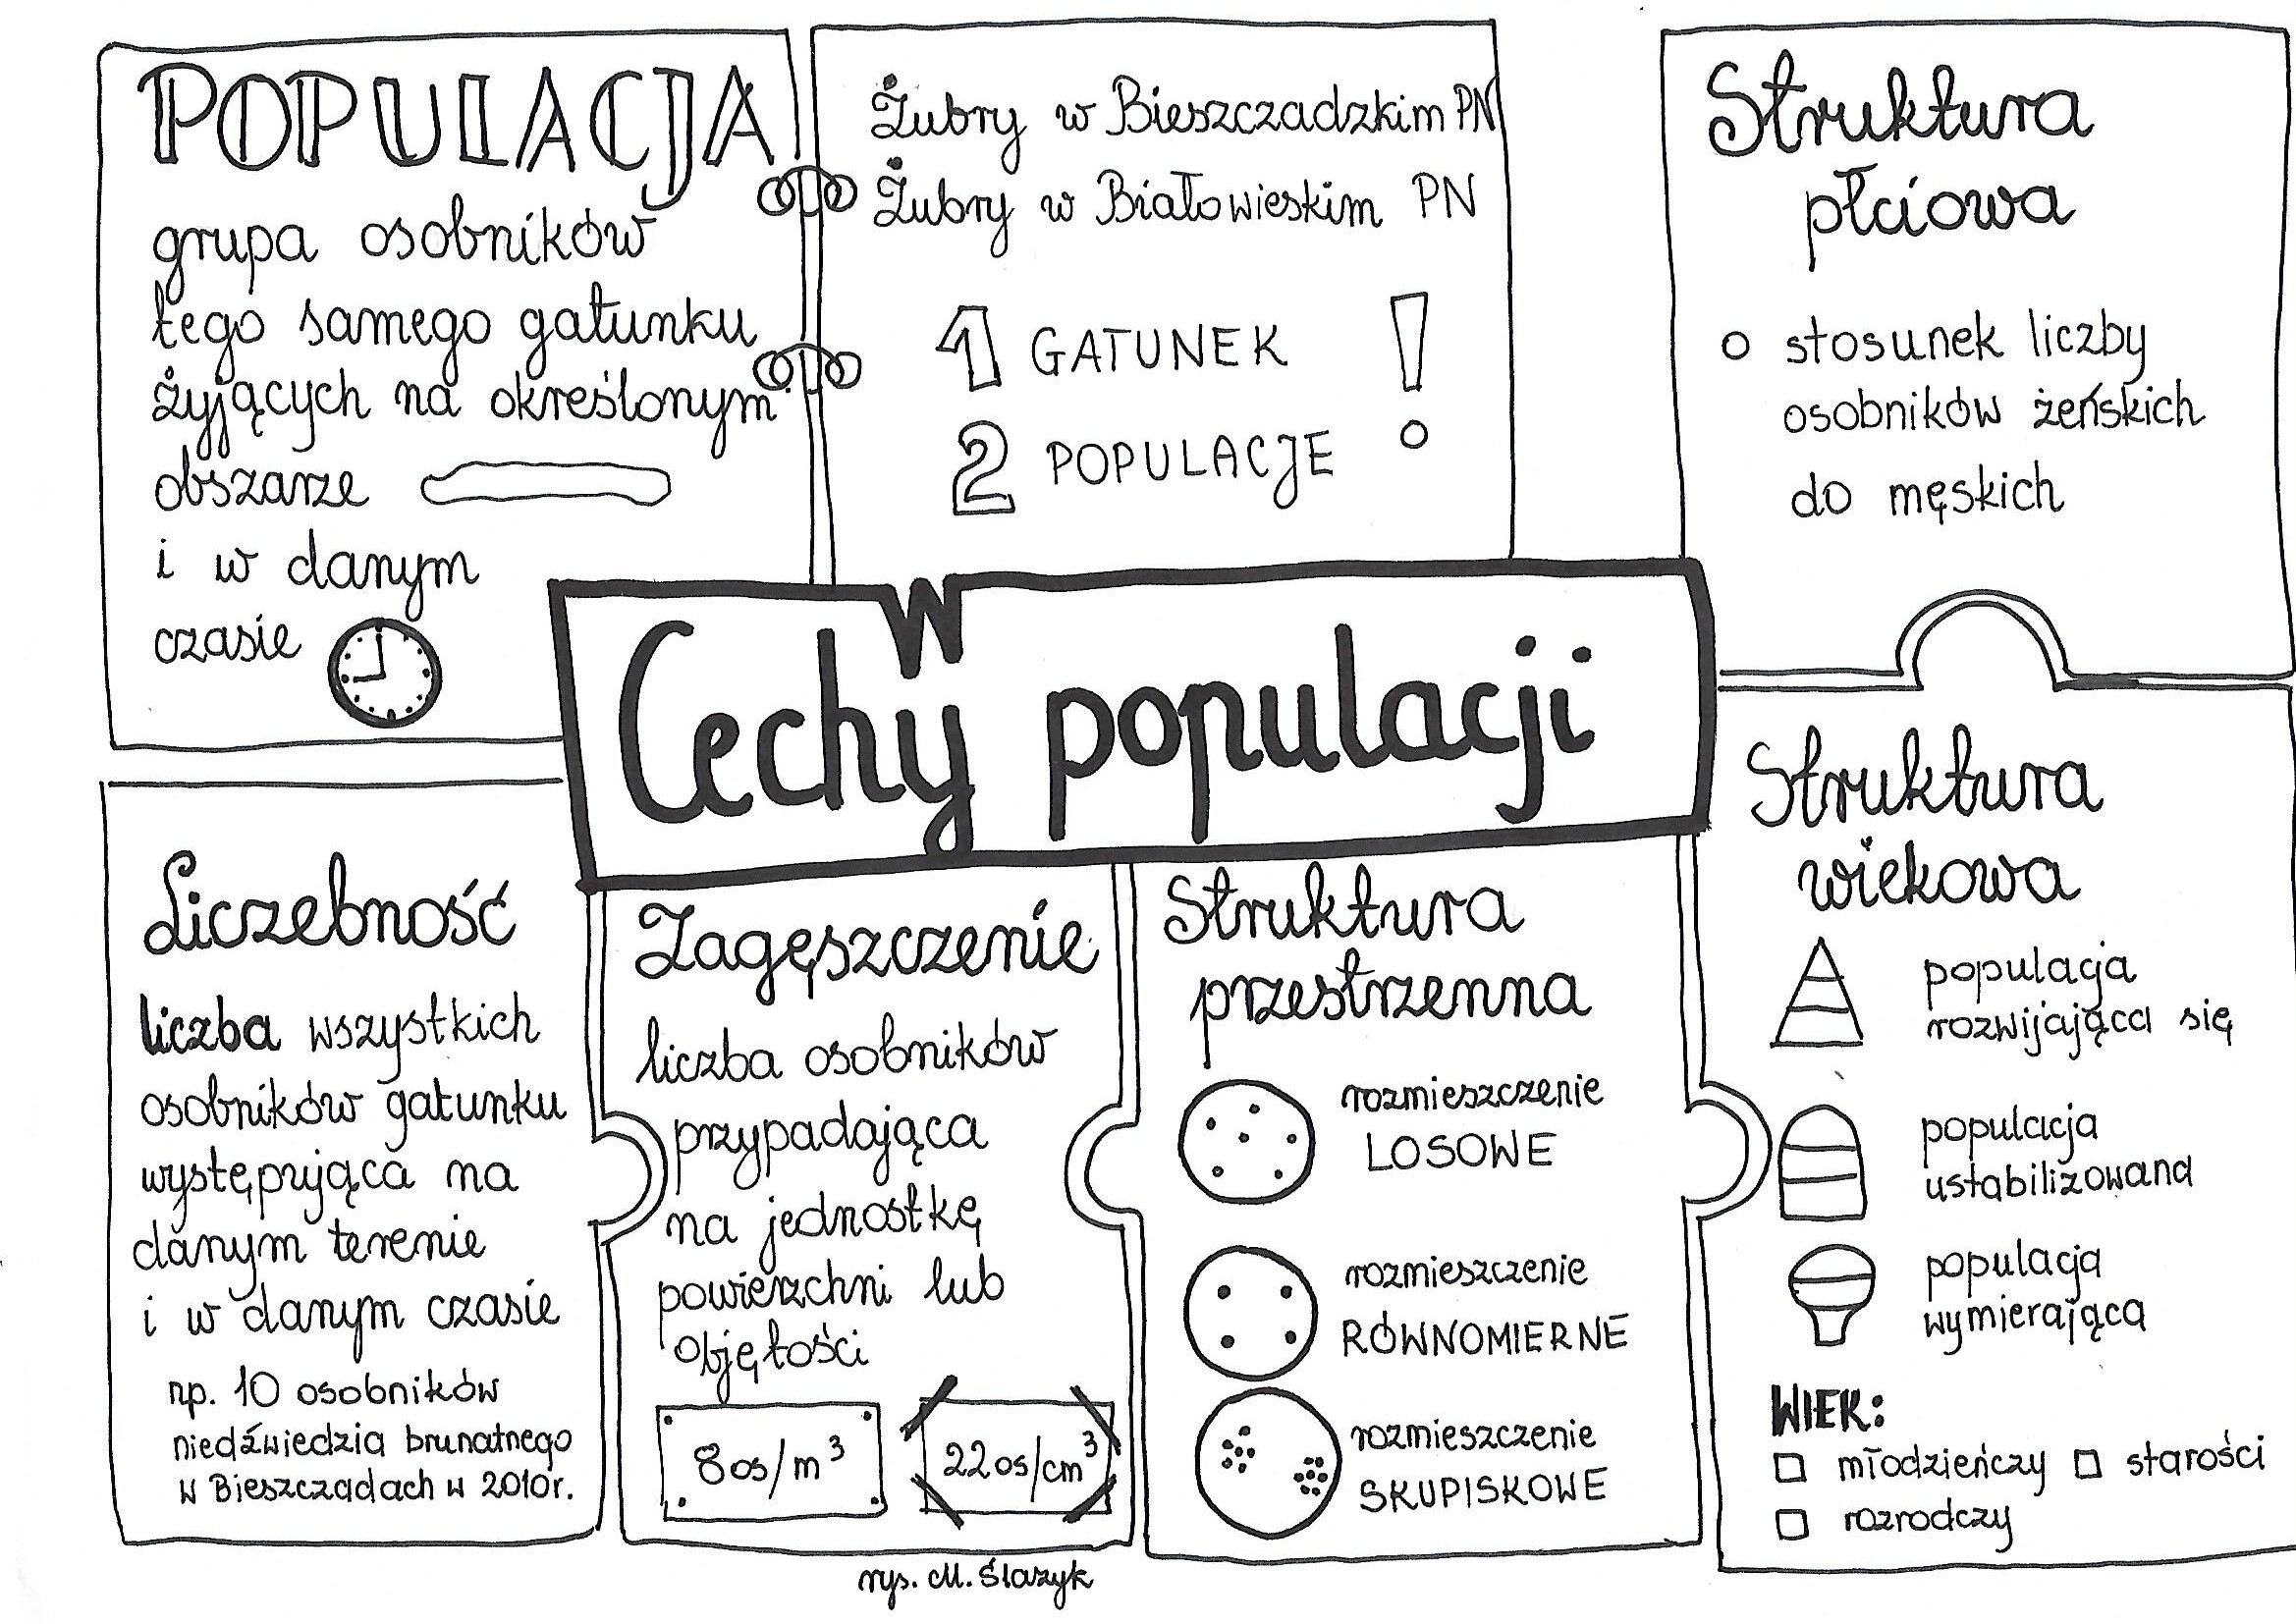 POPULACJA
grupa osobników
tego samego gatunku
żyjących na określonym
obszarze
i w danym
czasie
Żubry w Bieszczadzkim PN
Żubry w Białowieskim PN
1 GATUNEK !
2 POPULACJE
Struktura
płciowa
o stosunek liczby
osobników żeńskich
do męskich
Cechy populacji
Liczebność
liczba wszystkich
osobników gatunku
występująca na
danym terenie
i w danym czasie
np. 10 osobników
niedźwiedzia brunatnego
w Bieszczadach w 2010r.
Zagęszczenie
liczba osobników
przypadająca
na jednostkę
powierzchni lub
objętości
8os/m³
22os/cm³
Struktura
przestrzenna
rozmieszczenie
LOSOWE
rozmieszczenie
RÓWNOMIERNE
rozmieszczenie
SKUPISKOWE
Struktura
wiekowa
populacja
rozwijająca się
populacja
ustabilizowana
populacja
wymierająca
WIEK:
młodzieńczy starości
rozrodczy
rys. M. Ślazyk